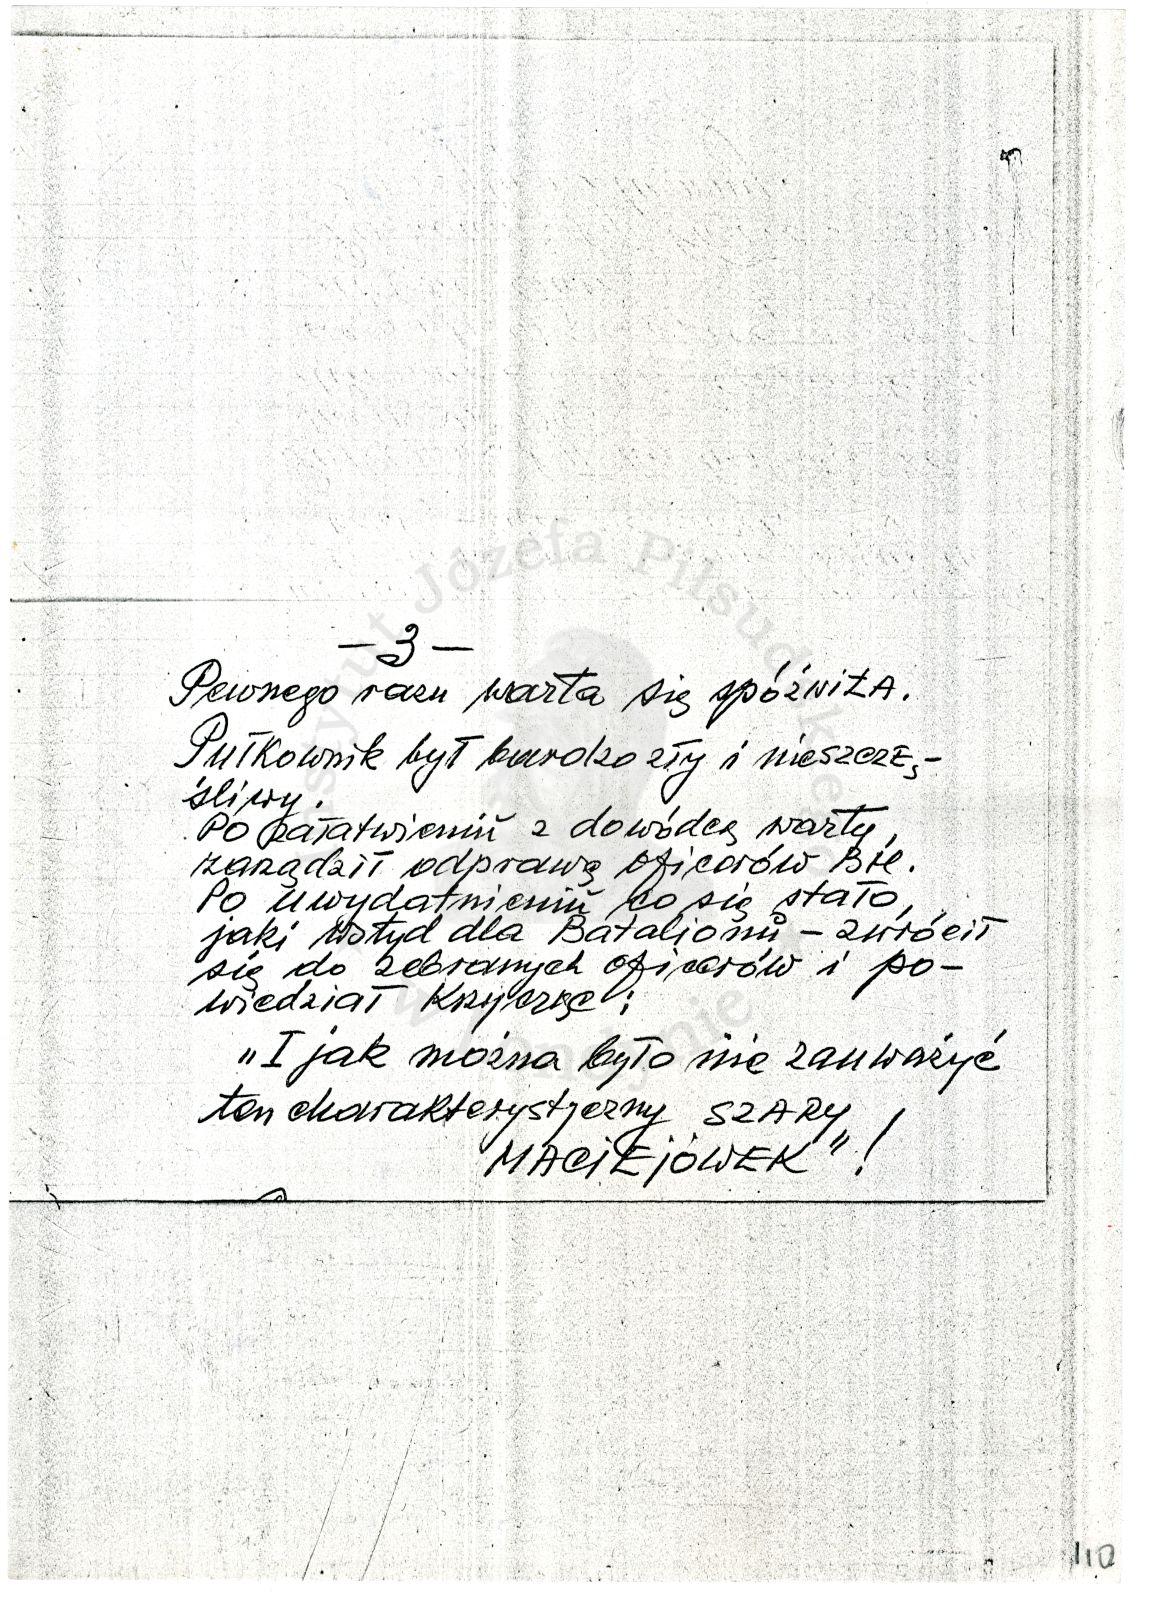 - 3 -
Pewnego razu warta się spóźNiŁA.
Pułkownik był bardzo zły i nieszczę-
śliwy.
Po załatwieniu z dowódcą warty,
zarządził odprawę oficerów Bił.
Po uwydatnieniu co się stało,
jaki wstyd dla Bataljonu – zwrócił
się do zebranych oficerów i po-
wiedział krzycząc:
„I jak można było nie zauważyć
ten charakterystyczny SZARY
MACIEJÓWEK"!
110